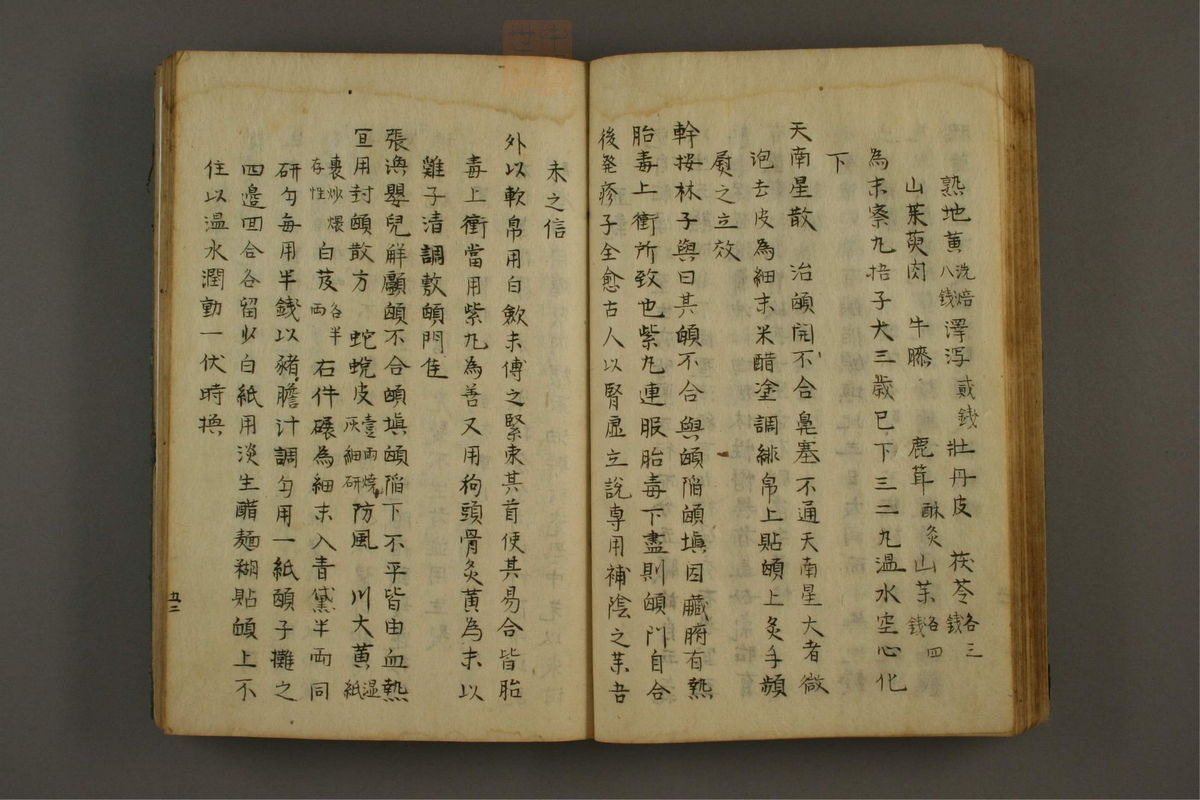 熟地黄洗焙八銭澤瀉貮銭牡丹皮 茯苓各三銭
山茱萸肉 牛膝 鹿茸酥灸 山茱各四銭
為末宻丸捂子大三歳巳下三二丸温水空心化
下
天南星散 治䪿開不合鼻塞不通天南星大者微
泡去皮為細末米醋塗調緋帛上貼䪿上灸手頻
熨之立效
幹按林子與曰其䪿不合與䪿陥䪿塡因臓腑有熱
胎毒上衝所致也紫丸連服胎毒下盡則䪿門自合
後発疹子全愈古人以腎虚立説専用補陰之茱吾
未之信
外以軟帛用白歛末傅之緊束其首使其易合皆胎
毒上衝當用紫丸為善又用狗頭骨灸黄為末以
雞子清調敷䪿門隹
張渙嬰兒解顱䪿不合䪿塡䪿陥下不平皆由血熱
宜用封䪿散方 蛇蛻皮壹両燒灰細研防風 川大黄湿紙
裹炒煨存性白芨各半両右件碾為細末入青黛半両同
研匀毎用半銭以豬膽汁調匀用一紙䪿子攤之
四邊囬合各留少白紙用淡生醋麺糊貼䪿上不
住以温水潤動一伏時換